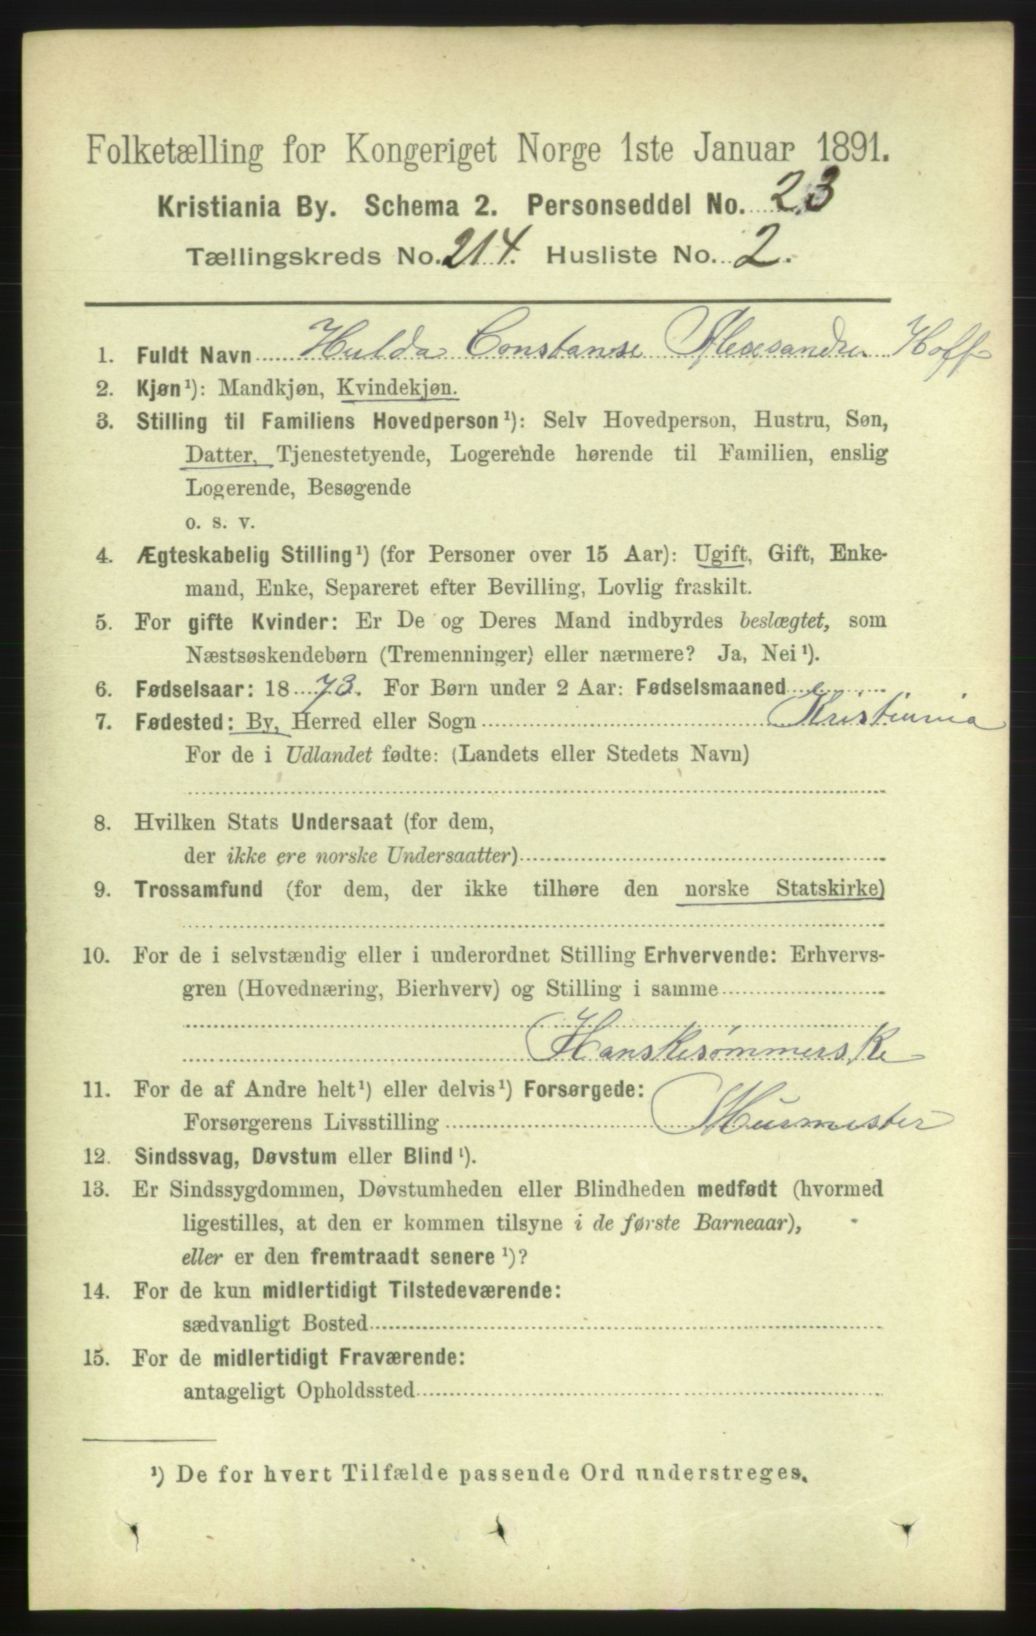 Folketælling for Kongeriget Norge 1ste Januar 1891.
Kristiania By. Schema 2. Personseddel No. 23
Tællingskreds No. 214. Husliste No. 2.
1. Fuldt Navn Hulda Constanse Alexsandra Hoff
2. Kjøn¹): Mandkjøn, Kvindekjøn.
3. Stilling til Familiens Hovedperson¹): Selv Hovedperson, Hustru, Søn,
Datter, Tjenestetyende, Logerende hørende til Familien, enslig
Logerende, Besøgende
o. s. v.
4. Ægteskabelig Stilling¹) (for Personer over 15 Aar): Ugift, Gift, Enke-
mand, Enke, Separeret efter Bevilling, Lovlig fraskilt.
5. For gifte Kvinder: Er De og Deres Mand indbyrdes beslægtet, som
Næstsøskendebørn (Tremenninger) eller nærmere? Ja, Nei¹).
6. Fødselsaar: 1873. For Børn under 2 Aar: Fødselsmaaned
7. Fødested: By, Herred eller Sogn Kristiania
For de i Udlandet fødte: (Landets eller Stedets Navn)
8. Hvilken Stats Undersaat (for dem,
der ikke ere norske Undersaatter)
9. Trossamfund (for dem, der ikke tilhøre den norske Statskirke)
10. For de i selvstændig eller i underordnet Stilling Erhvervende: Erhvervs-
gren (Hovednæring, Bierhverv) og Stilling i samme
Hanskesømmerske
11. For de af Andre helt¹) eller delvis¹) Forsørgede:
Forsørgerens Livsstilling Murmester
12. Sindssvag, Døvstum eller Blind¹).
13. Er Sindssygdommen, Døvstumheden eller Blindheden medfødt (hvormed
ligestilles, at den er kommen tilsyne i de første Barneaar),
eller er den fremtraadt senere¹)?
14. For de kun midlertidigt Tilstedeværende:
sædvanligt Bosted
15. For de midlertidigt Fraværende:
antageligt Opholdssted
¹) De for hvert Tilfælde passende Ord understreges.